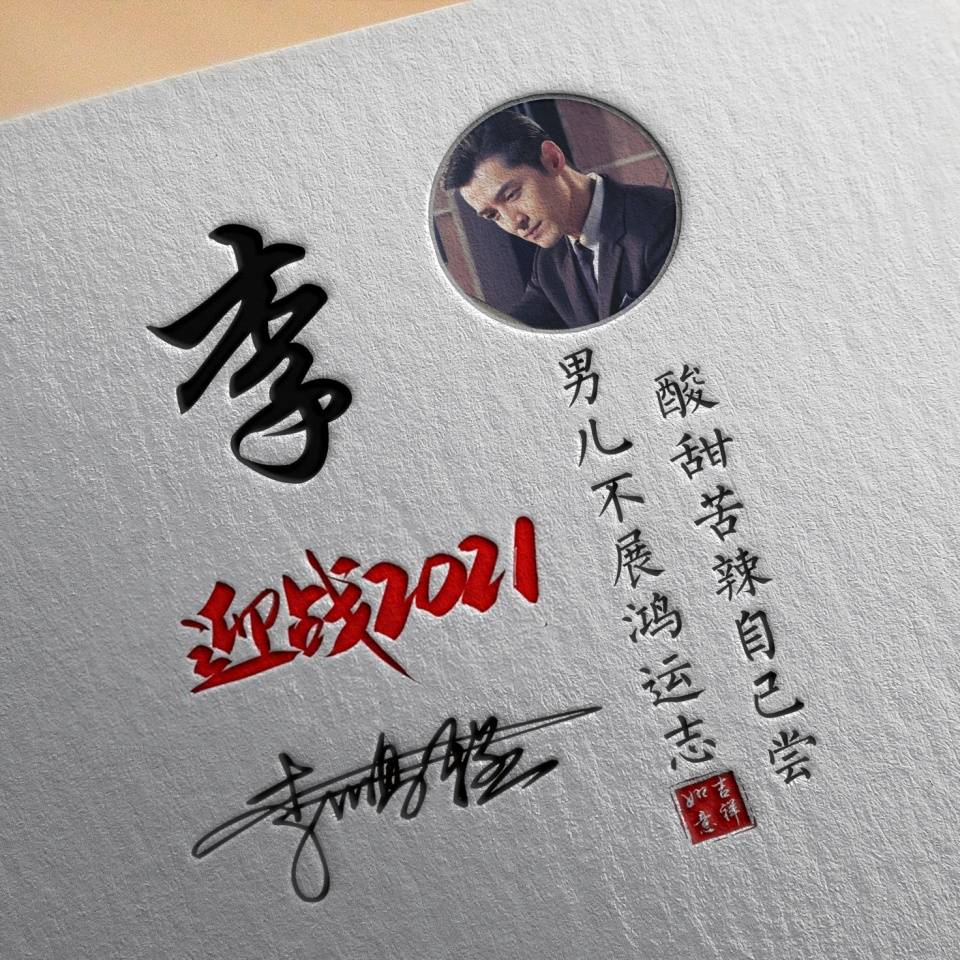 李
迎战2021
酸甜苦辣自己尝
男儿不展鸿运志
吉祥如意